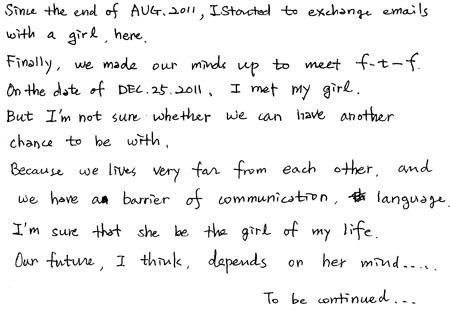 Since the end of AUG. 2011, I Started to exchange emails
with a girl, here.
Finally, we made our minds up to meet f-t-f.
On the date of DEC. 25. 2011, I met my girl.
But I'm not sure whether we can have another
chance to be with,
Because we lives very far from each other, and
we have a barrier of communication, language.
I'm sure that she be the girl of my life.
Our future, I think, depends on her mind.....
To be continued...